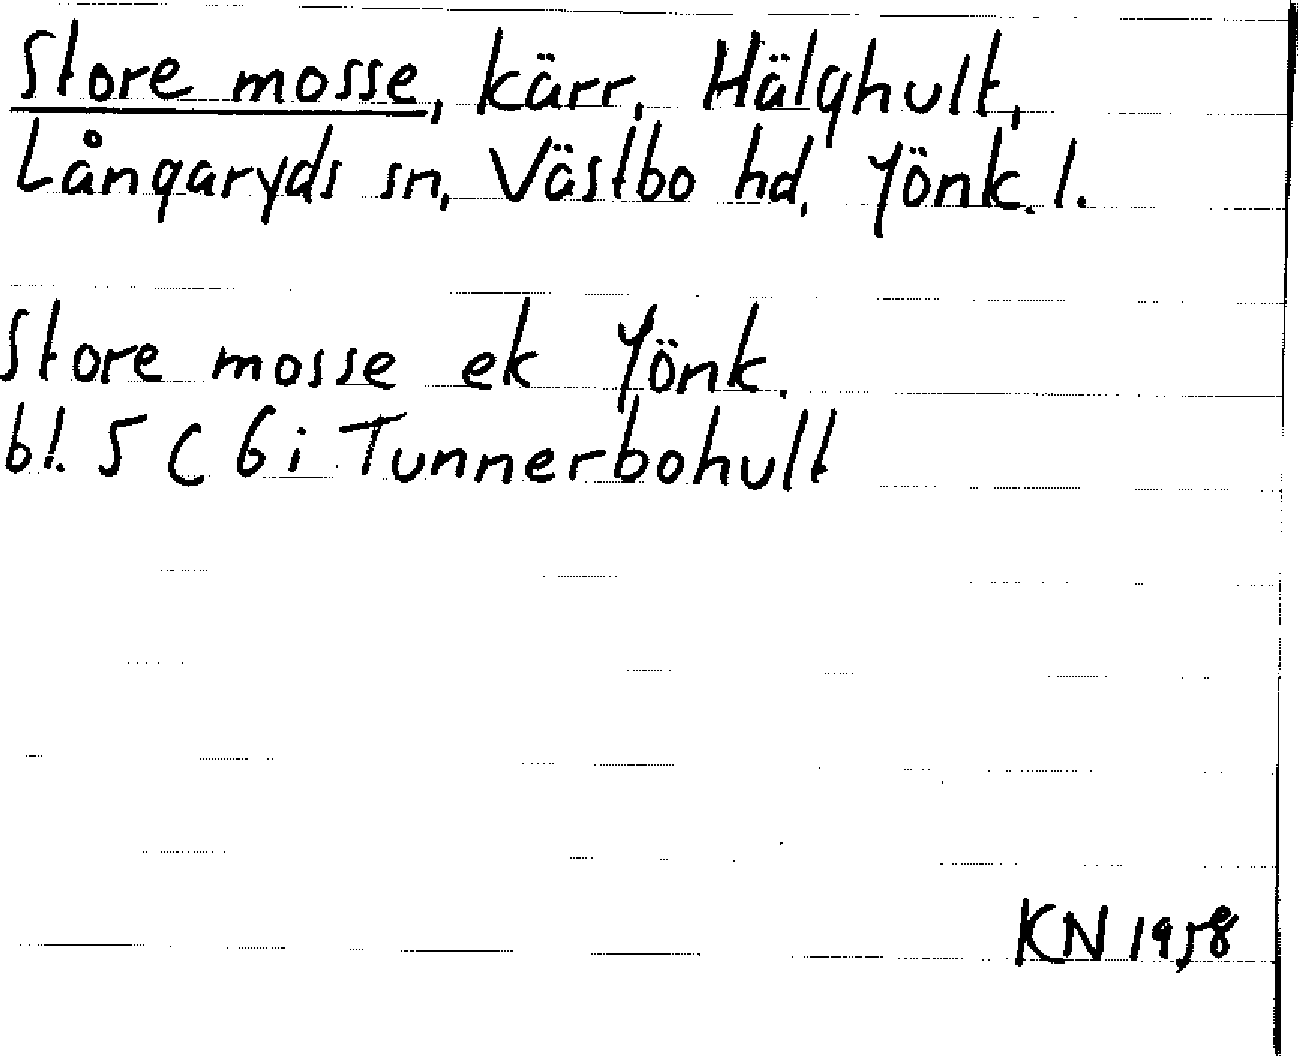 Store mosse, kärr, Hälghult,
Långaryds sn, Västbo hd, Jönk. l.
Store mosse ek Jönk.
bl. 5 C 6 i Tunnerbohult
KN 1958